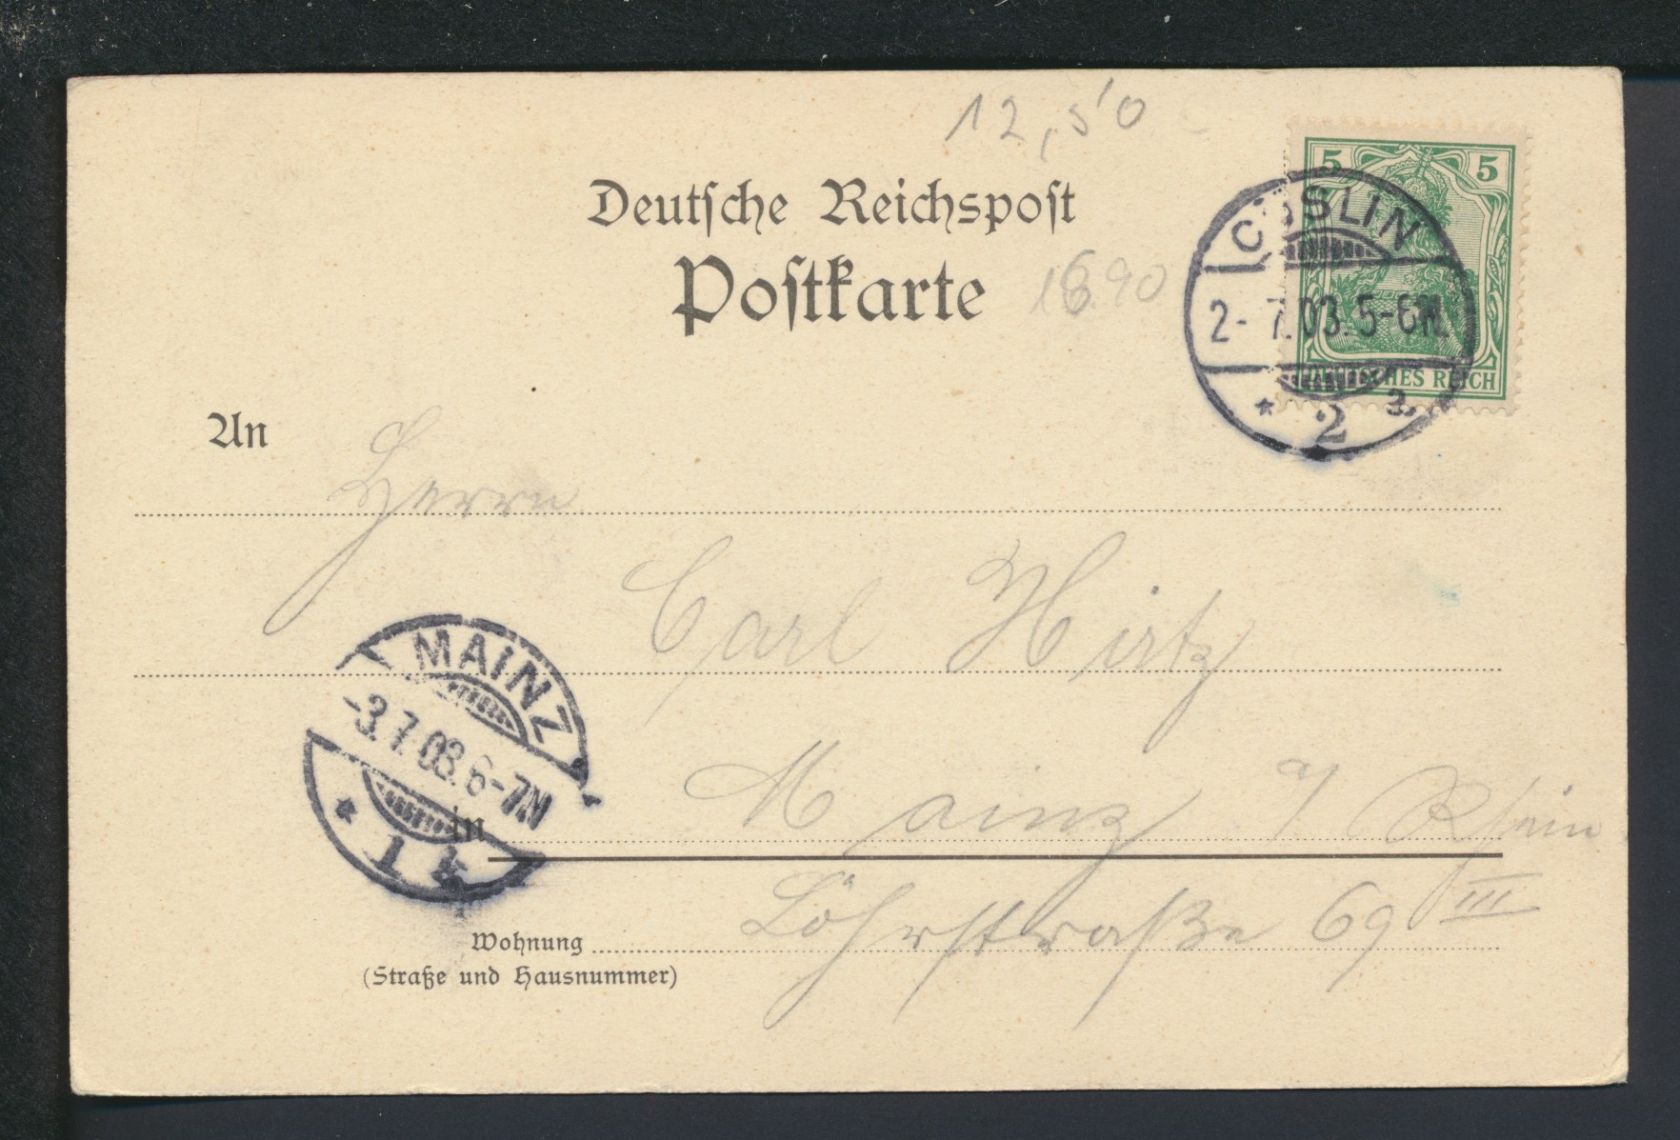 12,50
Deutsche Reichspost
Postkarte
16.90
5 5
DEUTSCHES REICH
CÖSLIN
2-7.03.5-6N.
* 2 a.
An
Herrn
Carl Hirtz
MAINZ
-3.7.03.6-7N
* 1
in Mainz a/ Rhein
Wohnung Löhrstraße 69 III
(Straße und Hausnummer)